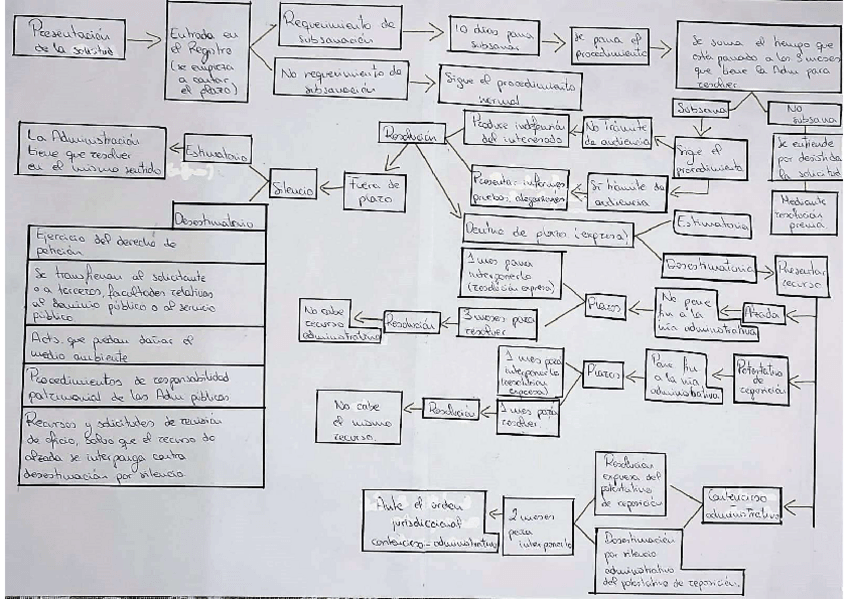 Presentación
de la solicitud
Entrada en
el Registro
(se empieza
a contar
el plazo)
Requerimiento de
subsanación
10 días para
subsanar
se para el
procedimiento
Se suma el tiempo que
está parado a los 3 meses
que tiene la Adm para
resolver
No requerimiento de
subsanación
Sigue el procedimiento
normal
Subsana
No
subsana
Se entiende
por desistida
la solicitud
Mediante
resolución
previa
Sigue el
procedimiento
No Trámite
de audiencia
Produce indefensión
del interesado
Sí trámite de
audiencia
Presentar informes
pruebas, alegaciones
Resolución
Fuera de
plazo
Silencio
Estimatorio
La Administración
tiene que resolver
en el mismo sentido
Desestimatorio
Ejercicio del derecho de
petición
Se transfieran al solicitante
o a terceros, facultades relativas
al dominio público o al servicio
público
Acts. que puedan dañar el
medio ambiente
Procedimientos de responsabilidad
patrimonial de las Adm públicas
Recursos y solicitudes de revisión
de oficio, salvo que el recurso de
alzada se interponga contra
desestimación por silencio
Dentro de plazo (expresa)
Estimatoria
Desestimatoria
Presentar
recurso
Alzada
No pone
fin a la
vía administrativa
Plazos
1 mes para
interponerlo
(resolución expresa)
3 meses para
resolver
Resolución
No cabe
recurso
administrativo
Potestativo
de reposición
Pone fin
a la vía
administrativa
Plazos
1 mes para
interponerlo
(resolución
expresa)
1 mes para
resolver.
Resolución
No cabe
el mismo
recurso.
Contencioso
administrativo
Resolución
expresa del
potestativo
de reposición
Desestimación
por silencio
administrativo
del potestativo de reposición.
2 meses
para
interponerlo
Ante el orden
jurisdiccional
contencioso-administrativo